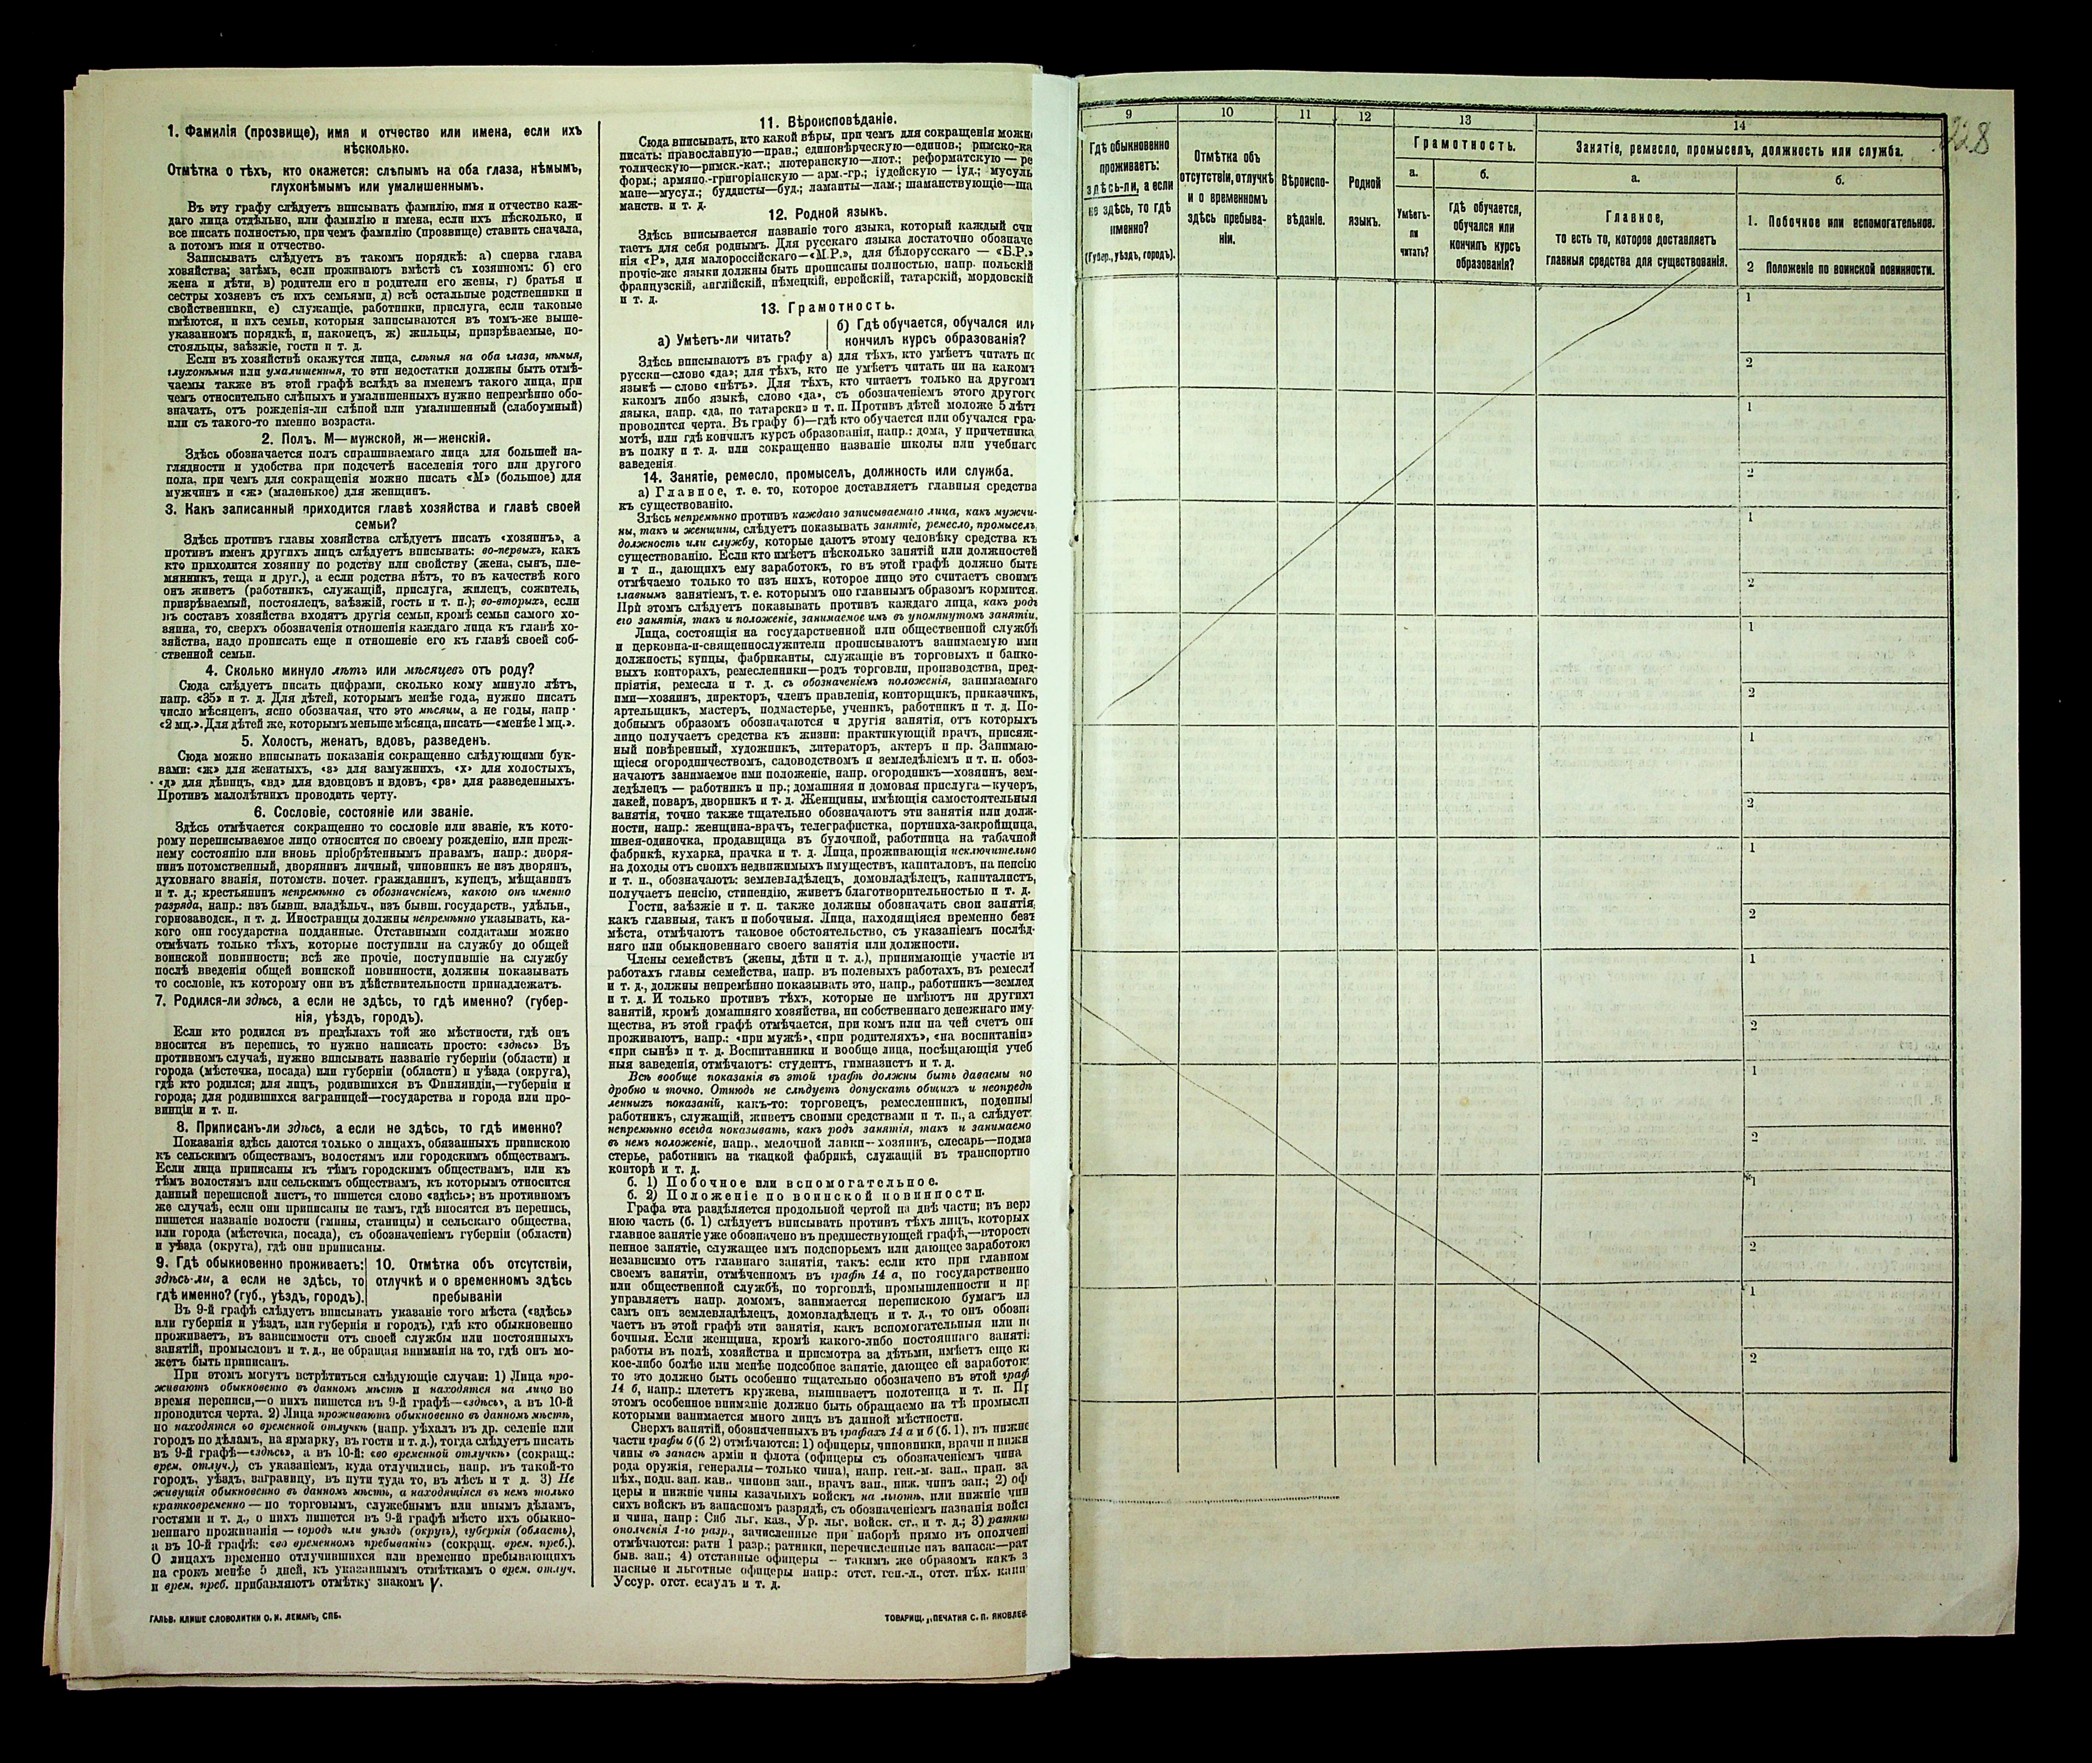 1. Фамилія (прозвище), имя и отчество или имена, если ихъ
нѣсколько.
Отмѣтка о тѣхъ, кто окажется: слѣпымъ на оба глаза, нѣмымъ,
глухонѣмымъ или умалишеннымъ.
Въ эту графу слѣдуетъ вписывать фамилію, имя и отчество каж-
даго лица отдѣльно, или фамилію и имена, если ихъ нѣсколько, и
все писать полностью, при чемъ фамилію (прозвище) ставить сначала,
а потомъ имя и отчество.
Записывать слѣдуетъ въ такомъ порядкѣ: а) сперва глава
хозяйства; затѣмъ, если проживаютъ вмѣстѣ съ хозяиномъ: б) его
жена и дѣти, в) родители его и родители его жены, г) братья и
сестры хозяевъ съ ихъ семьями, д) всѣ остальные родственники и
свойственники, е) служащіе, работники, прислуга, если таковые
имѣются, и ихъ семьи, которыя записываются въ томъ-же выше-
указанномъ порядкѣ, и, наконецъ, ж) жильцы, призрѣваемые, по-
стояльцы, заѣзжіе, гости и т. д.
Если въ хозяйствѣ окажутся лица, слѣпыя на оба глаза, нѣмыя,
глухонѣмыя или умалишенныя, то эти недостатки должны быть отмѣ-
чаемы также въ этой графѣ вслѣдъ за именемъ такого лица, при
чемъ относительно слѣпыхъ и умалишенныхъ нужно непремѣнно обо-
значать, отъ рожденія-ли слѣпой или умалишенный (слабоумный)
или съ такого-то именно возраста.
2. Полъ. М—мужской, ж—женскій.
Здѣсь обозначается полъ спрашиваемаго лица для большей на-
глядности и удобства при подсчетѣ населенія того или другого
пола, при чемъ для сокращенія можно писать «М» (большое) для
мужчинъ и «ж» (маленькое) для женщинъ.
3. Какъ записанный приходится главѣ хозяйства и главѣ своей
семьи?
Здѣсь противъ главы хозяйства слѣдуетъ писать «хозяинъ», а
противъ именъ другихъ лицъ слѣдуетъ вписывать: во-первыхъ, какъ
кто приходится хозяину по родству или свойству (жена, сынъ, пле-
мянникъ, теща и друг.), а если родства нѣтъ, то въ качествѣ кого
онъ живетъ (работникъ, служащій, прислуга, жилецъ, сожитель,
призрѣваемый, постоялецъ, заѣзжій, гость и т. п.); во-вторыхъ, если
въ составъ хозяйства входятъ другія семьи, кромѣ семьи самого хо-
зяина, то, сверхъ обозначенія отношенія каждаго лица къ главѣ хо-
зяйства, надо прописать еще и отношеніе его къ главѣ своей соб-
ственной семьи.
4. Сколько минуло лѣтъ или мѣсяцевъ отъ роду?
Сюда слѣдуетъ писать цифрами, сколько кому минуло лѣтъ,
напр. «35» и т. д. Для дѣтей, которымъ менѣе года, нужно писать
число мѣсяцевъ, ясно обозначая, что это мѣсяцы, а не годы, напр.
«2 мц.». Для дѣтей же, которымъ меньше мѣсяца, писать—«менѣе 1 мц.».
5. Холостъ, женатъ, вдовъ, разведенъ.
Сюда можно вписывать показанія сокращенно слѣдующими бук-
вами: «ж» для женатыхъ, «з» для замужнихъ, «х» для холостыхъ,
«д» для дѣвицъ, «вд» для вдовцовъ и вдовъ, «рз» для разведенныхъ.
Противъ малолѣтнихъ проводить черту.
6. Сословіе, состояніе или званіе.
Здѣсь отмѣчается сокращенно то сословіе или званіе, къ кото-
рому переписываемое лицо относится по своему рожденію, или преж-
нему состоянію или вновь пріобрѣтеннымъ правамъ, напр.: дворя-
нинъ потомственный, дворянинъ личный, чиновникъ не изъ дворянъ,
духовнаго званія, потомств. почет. гражданинъ, купецъ, мѣщанинъ
и т. д.; крестьянинъ непремѣнно съ обозначеніемъ, какого онъ именно
разряда, напр.: изъ бывш. владѣльч., изъ бывш. государств., удѣльн.,
горнозаводск., и т. д. Иностранцы должны непремѣнно указывать, ка-
кого они государства подданные. Отставными солдатами можно
отмѣчать только тѣхъ, которые поступили на службу до общей
воинской повинности; всѣ же прочіе, поступившіе на службу
послѣ введенія общей воинской повинности, должны показывать
то сословіе, къ которому они въ дѣйствительности принадлежатъ.
7. Родился-ли здѣсь, а если не здѣсь, то гдѣ именно? (губер-
нія, уѣздъ, городъ).
Если кто родился въ предѣлахъ той же мѣстности, гдѣ онъ
вносится въ перепись, то нужно написать просто: «здѣсь». Въ
противномъ случаѣ, нужно вписывать названіе губерніи (области) и
города (мѣстечка, посада) или губерніи (области) и уѣзда (округа),
гдѣ кто родился; для лицъ, родившихся въ Финляндіи,—губерніи и
города; для родившихся заграницей—государства и города или про-
винціи и т. п.
8. Приписанъ-ли здѣсь, а если не здѣсь, то гдѣ именно?
Показанія здѣсь даются только о лицахъ, обязанныхъ припискою
къ сельскимъ обществамъ, волостямъ или городскимъ обществамъ.
Если лица приписаны къ тѣмъ городскимъ обществамъ, или къ
тѣмъ волостямъ или сельскимъ обществамъ, къ которымъ относится
данный переписной листъ, то пишется слово «здѣсь»; въ противномъ
же случаѣ, если они приписаны не тамъ, гдѣ вносятся въ перепись,
пишется названіе волости (гмины, станицы) и сельскаго общества,
или города (мѣстечка, посада), съ обозначеніемъ губерніи (области)
и уѣзда (округа), гдѣ они приписаны.
9. Гдѣ обыкновенно проживаетъ:
здѣсь-ли, а если не здѣсь, то
гдѣ именно? (губ., уѣздъ, городъ).
10. Отмѣтка объ отсутствіи,
отлучкѣ и о временномъ здѣсь
пребываніи
Въ 9-й графѣ слѣдуетъ вписывать указаніе того мѣста («здѣсь»
или губернія и уѣздъ, или губернія и городъ), гдѣ кто обыкновенно
проживаетъ, въ зависимости отъ своей службы или постоянныхъ
занятій, промысловъ и т. д., не обращая вниманія на то, гдѣ онъ мо-
жетъ быть приписанъ.
При этомъ могутъ встрѣтиться слѣдующіе случаи: 1) Лица про-
живаютъ обыкновенно въ данномъ мѣстѣ и находятся на лицо во
время переписи,—о нихъ пишется въ 9-й графѣ—«здѣсь», а въ 10-й
проводится черта. 2) Лица проживаютъ обыкновенно въ данномъ мѣстѣ,
но находятся во временной отлучкѣ (напр. уѣхалъ въ др. селеніе или
городъ по дѣламъ, на ярмарку, въ гости и т. д.), тогда слѣдуетъ писать
въ 9-й графѣ—«здѣсь», а въ 10-й: «во временной отлучкѣ» (сокращ.:
врем. отлуч.), съ указаніемъ, куда отлучились, напр. въ такой-то
городъ, уѣздъ, заграницу, въ пути туда то, въ лѣсъ и т д. 3) Не
живущія обыкновенно въ данномъ мѣстѣ, а находящіяся въ немъ только
кратковременно — по торговымъ, служебнымъ или инымъ дѣламъ,
гостями и т. д., о нихъ пишется въ 9-й графѣ мѣсто ихъ обыкно-
веннаго проживанія — городъ или уѣздъ (округъ), губернія (область),
а въ 10-й графѣ: «во временномъ пребываніи» (сокращ. врем. преб.).
О лицахъ временно отлучившихся или временно пребывающихъ
на срокъ менѣе 5 дней, къ указаннымъ отмѣткамъ о врем. отлуч.
и врем. преб. прибавляютъ отмѣтку знакомъ V.
ГАЛЬВ. КЛИШЕ СЛОВОЛИТНИ О. И. ЛЕМАНЪ, СПБ.
11. Вѣроисповѣданіе.
Сюда вписывать, кто какой вѣры, при чемъ для сокращенія можн
писать: православную—прав.; единовѣрческую—единов.; римско-ка
толическую—римск.-кат.; лютеранскую—лют.; реформатскую — ре
форм.; армяно.-григоріанскую — арм.-гр.; іудейскую — іуд.; мусуль
мане—мусул.; буддисты—буд.; ламаиты—лам.; шаманствующіе—ша
манств. и т. д.
12. Родной языкъ.
Здѣсь вписывается названіе того языка, который каждый счи
таетъ для себя роднымъ. Для русскаго языка достаточно обозначе
нія «Р», для малороссійскаго—«М.Р.», для бѣлорусскаго — «Б.Р.»
прочіе-же языки должны быть прописаны полностью, напр. польскій
французскій, англійскій, нѣмецкій, еврейскій, татарскій, мордовскій
и т. д.
13. Грамотность.
а) Умѣетъ-ли читать?
б) Гдѣ обучается, обучался или
кончилъ курсъ образованія?
Здѣсь вписываютъ въ графу а) для тѣхъ, кто умѣетъ читать по
русски—слово «да»; для тѣхъ, кто не умѣетъ читать ни на какомъ
языкѣ — слово «нѣтъ». Для тѣхъ, кто читаетъ только на другомъ
какомъ либо языкѣ, слово «да», съ обозначеніемъ этого другого
языка, напр. «да, по татарски» и т. п. Противъ дѣтей моложе 5 лѣтъ
проводится черта. Въ графу б)—гдѣ кто обучается или обучался гра-
мотѣ, или гдѣ кончилъ курсъ образованія, напр.: дома, у причетника,
въ полку и т. д. или сокращенно названіе школы или учебнаго
заведенія.
14. Занятіе, ремесло, промыселъ, должность или служба.
а) Главное, т. е. то, которое доставляетъ главныя средства
къ существованію.
Здѣсь непремѣнно противъ каждаго записываемаго лица, какъ мужчи-
ны, такъ и женщины, слѣдуетъ показывать занятіе, ремесло, промыселъ,
должность или службу, которые даютъ этому человѣку средства къ
существованію. Если кто имѣетъ нѣсколько занятій или должностей
и т п., дающихъ ему заработокъ, то въ этой графѣ должно быть
отмѣчаемо только то изъ нихъ, которое лицо это считаетъ своимъ
главнымъ занятіемъ, т. е. которымъ оно главнымъ образомъ кормится.
При этомъ слѣдуетъ показывать противъ каждаго лица, какъ родъ
его занятія, такъ и положеніе, занимаемое имъ въ упомянутомъ занятіи.
Лица, состоящія на государственной или общественной службѣ
и церковно-и-священнослужители прописываютъ занимаемую ими
должность; купцы, фабриканты, служащіе въ торговыхъ и банко-
выхъ конторахъ, ремесленники—родъ торговли, производства, пред-
пріятія, ремесла и т. д. съ обозначеніемъ положенія, занимаемаго
ими—хозяинъ, директоръ, членъ правленія, конторщикъ, приказчикъ,
артельщикъ, мастеръ, подмастерье, ученикъ, работникъ и т. д. По-
добнымъ образомъ обозначаются и другія занятія, отъ которыхъ
лицо получаетъ средства къ жизни: практикующій врачъ, присяж-
ный повѣренный, художникъ, литераторъ, актеръ и пр. Занимаю-
щіеся огородничествомъ, садоводствомъ и земледѣліемъ и т. п. обоз-
начаютъ занимаемое ими положеніе, напр. огородникъ—хозяинъ, зем-
ледѣлецъ — работникъ и пр.; домашняя и домовая прислуга—кучеръ,
лакей, поваръ, дворникъ и т. д. Женщины, имѣющія самостоятельныя
занятія, точно также тщательно обозначаютъ эти занятія или долж-
ности, напр.: женщина-врачъ, телеграфистка, портниха-закройщица,
швея-одиночка, продавщица въ булочной, работница на табачной
фабрикѣ, кухарка, прачка и т. д. Лица, проживающія исключительно
на доходы отъ своихъ недвижимыхъ имуществъ, капиталовъ, на пенсію
и т. п., обозначаютъ: землевладѣлецъ, домовладѣлецъ, капиталистъ,
получаетъ пенсію, стипендію, живетъ благотворительностью и т. д.
Гости, заѣзжіе и т. п. также должны обозначать свои занятія,
какъ главныя, такъ и побочныя. Лица, находящіяся временно безъ
мѣста, отмѣчаютъ таковое обстоятельство, съ указаніемъ послѣд-
няго или обыкновеннаго своего занятія или должности.
Члены семействъ (жены, дѣти и т. д.), принимающіе участіе въ
работахъ главы семейства, напр. въ полевыхъ работахъ, въ ремеслѣ
и т. д., должны непремѣнно показывать это, напр., работникъ—землед
и т. д. И только противъ тѣхъ, которые не имѣютъ ни другихъ
занятій, кромѣ домашняго хозяйства, ни собственнаго денежнаго иму-
щества, въ этой графѣ отмѣчается, при комъ или на чей счетъ они
проживаютъ, напр.: «при мужѣ», «при родителяхъ», «на воспитаніи»
«при сынѣ» и т. д. Воспитанники и вообще лица, посѣщающія учеб
ныя заведенія, отмѣчаютъ: студентъ, гимназистъ и т. д.
Всѣ вообще показанія въ этой графѣ должны быть даваемы по
дробно и точно. Отнюдь не слѣдуетъ допускать общихъ и неопредѣ
ленныхъ показаній, какъ-то: торговецъ, ремесленникъ, поденный
работникъ, служащій, живетъ своими средствами и т. п., а слѣдуетъ
непремѣнно всегда показывать, какъ родъ занятія, такъ и занимаемо
въ немъ положеніе, напр., мелочной лавки—хозяинъ, слесарь—подма
стерье, работникъ на ткацкой фабрикѣ, служащій въ транспортно
конторѣ и т. д.
б. 1) Побочное или вспомогательное.
б. 2) Положеніе по воинской повинности.
Графа эта раздѣляется продольной чертой на двѣ части; въ верх
нюю часть (б. 1) слѣдуетъ вписывать противъ тѣхъ лицъ, которыхъ
главное занятіе уже обозначено въ предшествующей графѣ,—второсте
пенное занятіе, служащее имъ подспорьемъ или дающее заработокъ
независимо отъ главнаго занятія, такъ: если кто при главном
своемъ занятіи, отмѣченномъ въ графѣ 14 а, по государственно
или общественной службѣ, по торговлѣ, промышленности и пр
управляетъ напр. домомъ, занимается перепискою бумагъ ил
самъ онъ землевладѣлецъ, домовладѣлецъ и т. д., то онъ обозна
чаетъ въ этой графѣ эти занятія, какъ вспомогательныя или по
бочныя. Если женщина, кромѣ какого-либо постояннаго заняті
работы въ полѣ, хозяйства и присмотра за дѣтьми, имѣетъ еще ка
кое-либо болѣе или менѣе подсобное занятіе, дающее ей заработок
то это должно быть особенно тщательно обозначено въ этой граф
14 б, напр.: плететъ кружева, вышиваетъ полотенца и т. п. Пр
этомъ особенное вниманіе должно быть обращаемо на тѣ промысл
которыми занимается много лицъ въ данной мѣстности.
Сверхъ занятій, обозначенныхъ въ графахъ 14 а и б (б. 1), въ нижне
части графы б (б 2) отмѣчаются: 1) офицеры, чиновники, врачи и нижн
чины въ запасѣ арміи и флота (офицеры съ обозначеніемъ чина
рода оружія, генералы—только чина), напр. ген.-м. зап., прап. за
пѣх., подп. зап. кав., чиновн зап., врачъ зап., ниж. чинъ зап.; 2) оф
церы и нижніе чины казачьихъ войскъ на льготѣ, или нижніе чин
сихъ войскъ въ запасномъ разрядѣ, съ обозначеніемъ названія войск
и чина, напр: Сиб льг. каз., Ур. льг. войск. ст., и т. д.; 3) ратник
ополченія 1-го разр., зачисленные при наборѣ прямо въ ополчені
отмѣчаются: ратн 1 разр.; ратники, перечисленные изъ запаса:—рат
быв. зап.; 4) отставные офицеры — такимъ же образомъ какъ з
пасные и льготные офицеры напр.: отст. ген.-л., отст. пѣх. капи
Уссур. отст. есаулъ и т. д.
ТОВАРИЩ. „ПЕЧАТНЯ С. П. ЯКОВЛЕВ
9
10
11
12
13
14
228
Гдѣ обыкновенно
проживаетъ:
здѣсь-ли, а если
не здѣсь, то гдѣ
именно?
(Губер., уѣздъ, городъ).
Отмѣтка объ
отсутствіи, отлучкѣ
и о временномъ
здѣсь пребыва-
ніи.
Вѣроиспо-
вѣданіе.
Родной
языкъ.
Грамотность.
а.
Умѣетъ-
ли
читать?
б.
гдѣ обучается,
обучался или
кончилъ курсъ
образованія?
Занятіе, ремесло, промыселъ, должность или служба.
а.
Главное,
то есть то, которое доставляетъ
главныя средства для существованія.
б.
1. Побочное или вспомогательное.
2 Положеніе по воинской повинности.
1
2
1
2
1
2
1
2
1
2
1
2
1
2
1
2
1
2
1
2